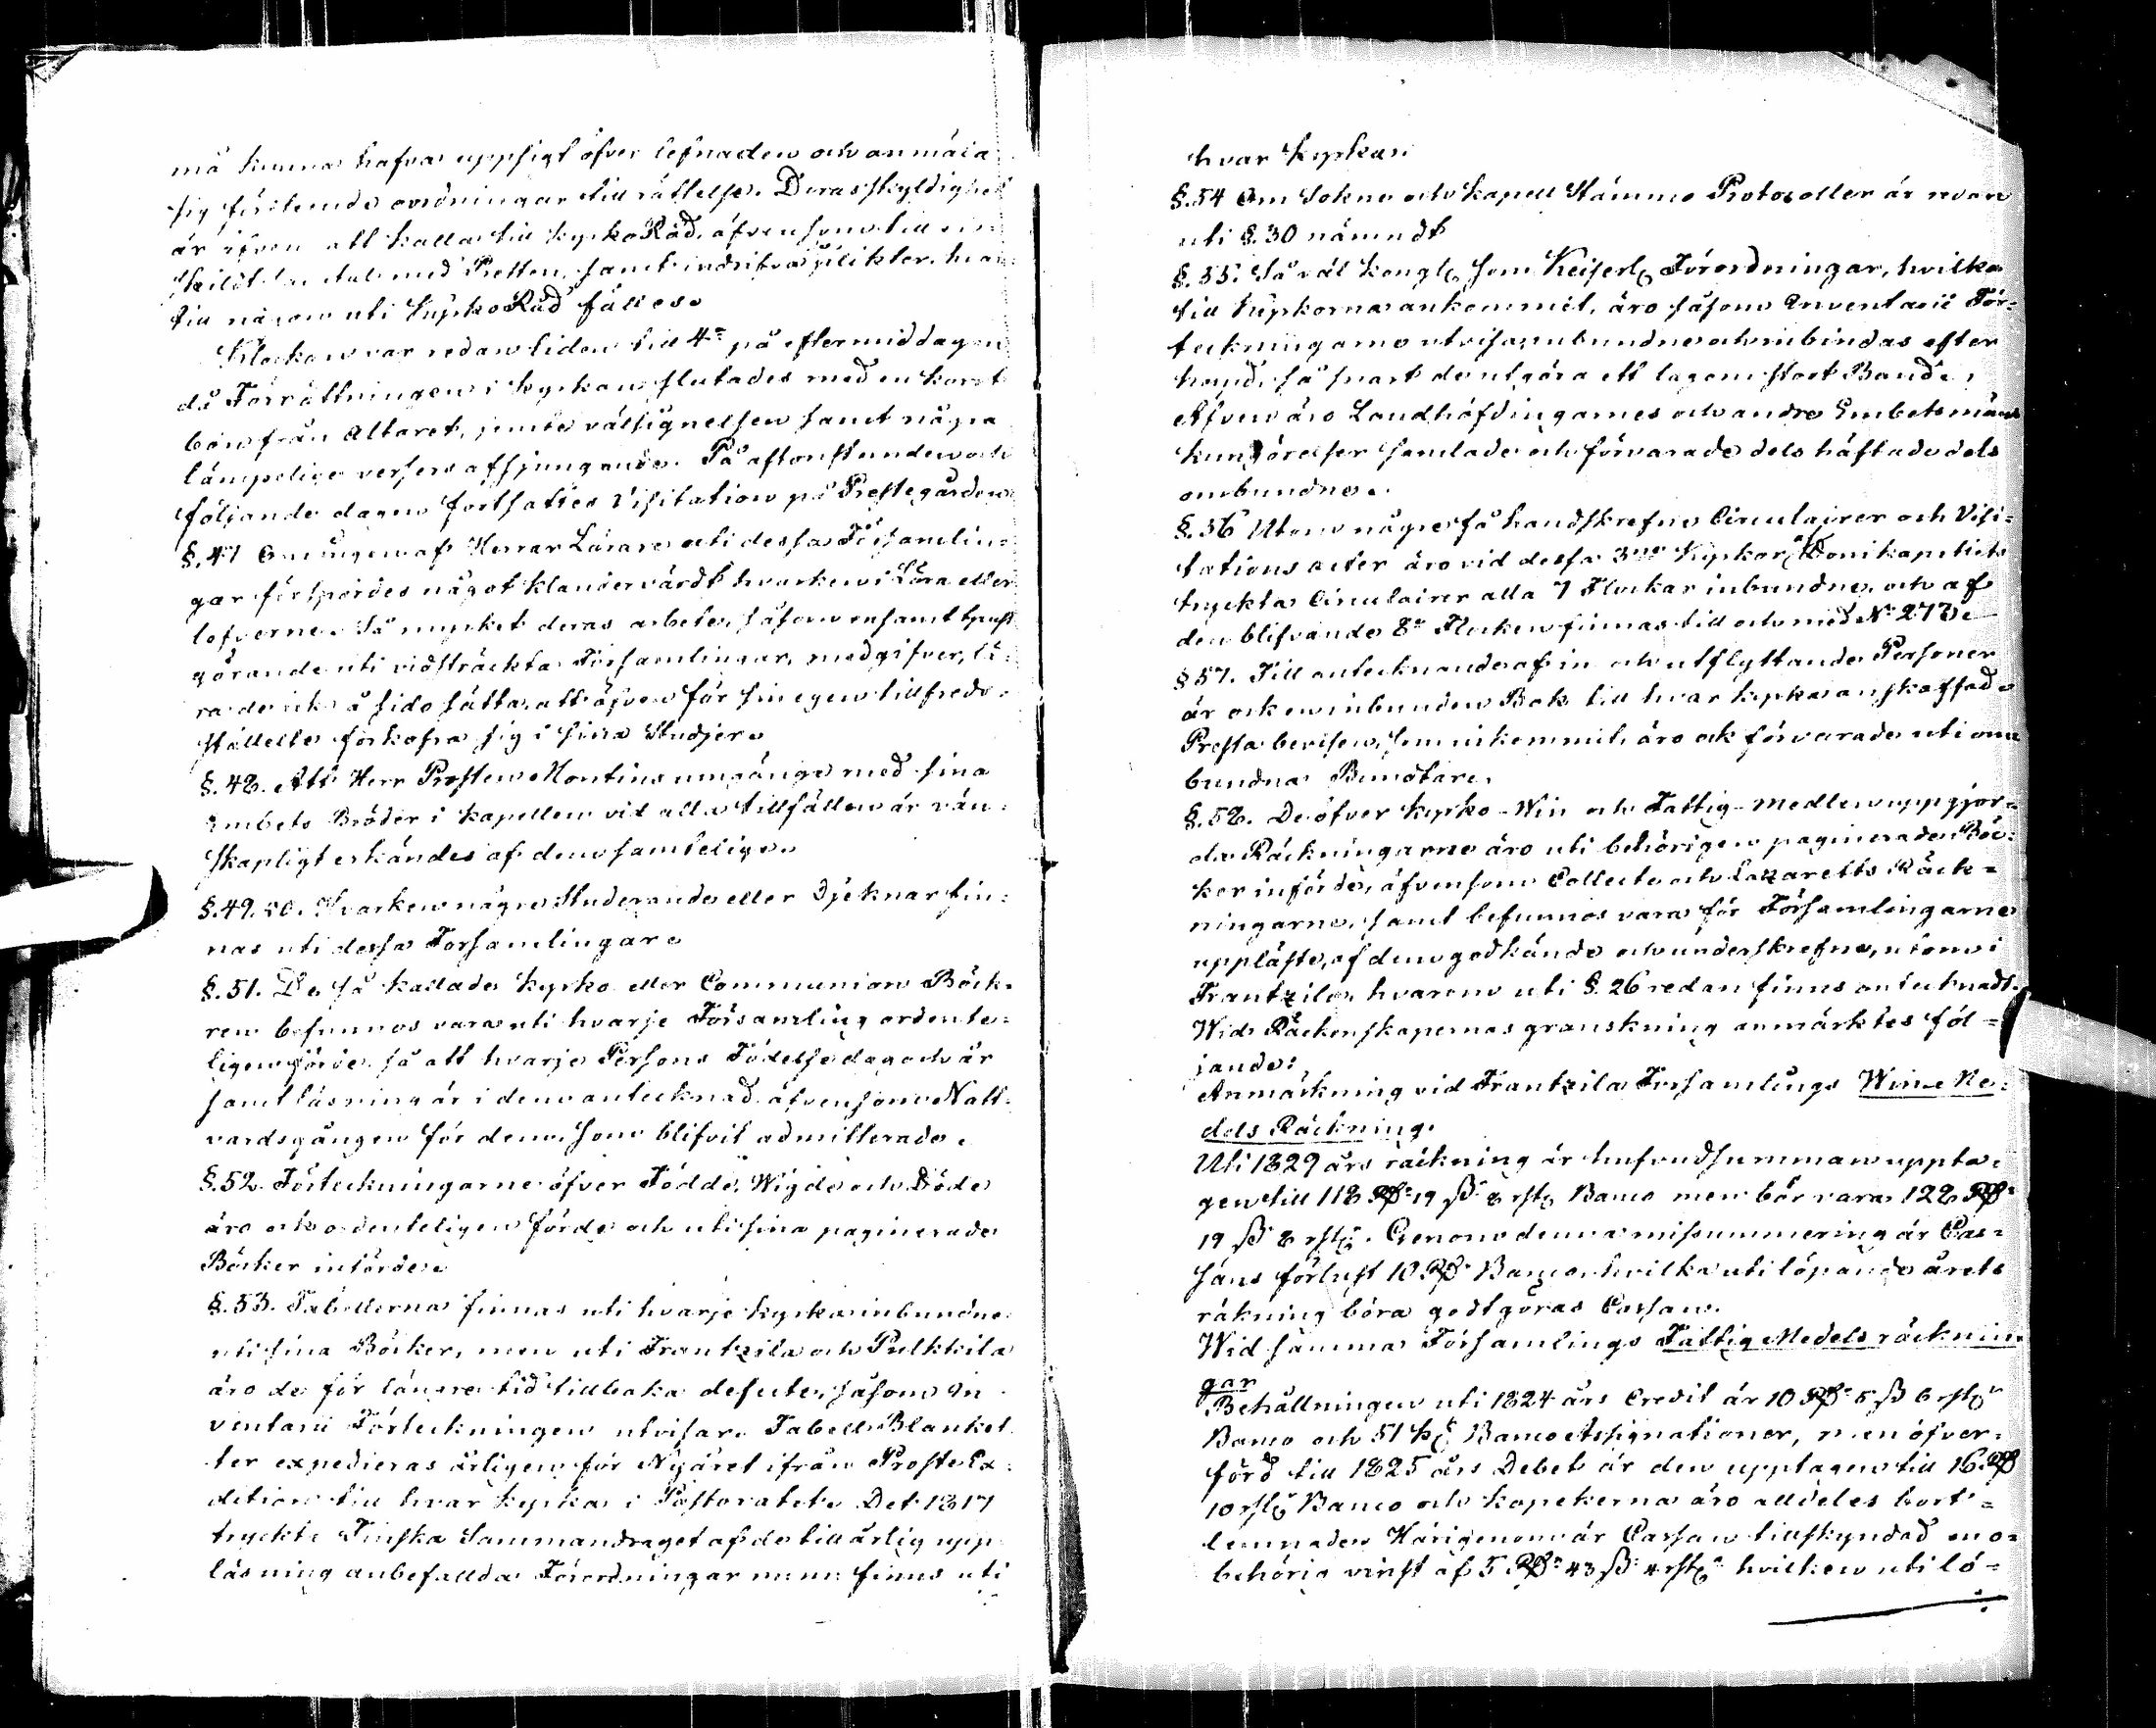 må kunna hafva uppsigt öfver lefnaden och anmäla
sig företeende oordningar till rättelse. Deras skyldighet
är äfven att kallas till KyrkoRåd, äfvensom till en-
skildt samtal med Presten, samt indrifva plikter, hvar-
till någon uti KyrkoRåd fälles.
Klockan var redan liden till 4ra på eftermiddagen
då Förrättningen i kyrkan slutades med en kort
bön från Altaret, jemte välsignelsen samt några
lämpelige versers afsjungande. På aftonstunden och
följande dagen fortsattes Visitation på Prestegården.
§.47 Om ingen af Herrar Lärare uti dessa Församlin-
gar förspordes något klandervärdt hvarken i Lära eller
lefverne. Så mycket deras arbete, såsom ensamt tjenst
görande uti vidsträckta Församlingar, medgifver, lä-
ra de icke å sido sätta, att äfven för sin egen tillfreds-
ställelse förkofra sig i sina Studier.
§.48. Att Herr Prosten Montins umgänge med sina
Embets Bröder i kapellen vid alla tillfällen är vän-
skapligt erkändes af dem samtelige.
§.49. 50. Hvarken någre Studerande eller Djeknar fin-
nas uti dessa Församlingar.
§.51. De så kallade kyrko eller Communion Böck-
ren befunnos vara uti hvarje Församling ordente-
ligen förde, så att hvarje Persons Födelsedag och år
samt läsning är i dem antecknad, äfvensom Natt-
vardsgången för dem, som blifvit admitterade.
§.52. Förteckningarne öfver Födde, Wigde och Döde
äro ock ordenteligen förde och uti sina paginerade
Böcker införde.
§.53. Tabellerna finnas uti hvarje kyrka inbundne
uti sina Böcker, men uti Frantzila och Pulkkila
äro de för längre tid tillbaka defecte, såsom In-
ventarii Förteckningen utvisar. Tabells Blanket-
ter expedieras årligen för Nyåret ifrån Proste Ex-
dition till hvar kyrka i Pastoratet. Det 1817
tryckte Finska Sammandraget af de till årlig upp-
läsning anbefallda Förordningar m.m. finns uti
hvar kyrka.
§.54 Om Sokne och Kapell Stämmo Protocoller är redan
uti §.30 nämndt
§.55. Så väl Kongl. som Keiserl. Förordningar, hvilka
till Kyrkorna ankommit, äro såsom Inventarii För-
teckningarne utvisa, inbundne och inbindas efter
hand, så snart de utgöra ett lagom stort Band.
Äfven äro Landhöfdingarnes och andre Embetsmäns
kungörelser samlade och förvarade dels häftade dels
ombundne.
§.56 Utom någre få handskrefne Circulairer och Visi-
tations acter äro vid dessa 3ne Kyrkor, Domkapitlets
tryckta Circulairer alla 7 Flockar inbundne, och af
den blifvande 8de Flocken finnas till och med No 273.
§57. Till antecknande af in och utflyttande Personer
är ock en inbunden Bok till hvar kyrka anskaffad.
Presta bevisen, som inkommit, äro ock förvarade uti om-
bundna Bundtar.
§.58. De öfver Kyrko-Win och Fattig-medlen uppgjor-
da Räckningarne äro uti behörigen paginerade Böc-
ker införde, äfvensom Collecte och Lazaretts Räck-
ningarne, samt befunnos vara för Församlingarne
uppläste, af dem godkände och underskrefne, utom i
Frantzila, hvarom uti §.26 redan finnes antecknadt.
Wid Räckenskapernas granskning anmärktes föl-
jande:
Anmärkning vid Frantzila Församlings Wine Me-
dels Räckning.
Uti 1829 års räckning är hufvudsumman uppta-
gen till 118 Rd 19 ß 8 rst. Banco men bör vara 128 Rd
19 ß 8 rst. Genom denna missummering är Cas-
sans förlust 10 Rd Banco, hvilka uti löpande årets
räkning böra godtgöras Cassan.
Wid samma Församlings Fattig Medels räcknin-
gar
Behållningen uti 1824 års Credit är 10 Rd 5 ß 6 rst
Banco och 51 kop Banco Assignationer, men öfver-
förd till 1825 års Debet är den upptagen till 16 Rd
10 rst Banco och kopekerna äro alldeles bort-
lemnade. Härigenom är Cassan tillskyndad en o-
behörig vinst af 5 Rd 43 ß 4 rst hvilken uti lö-